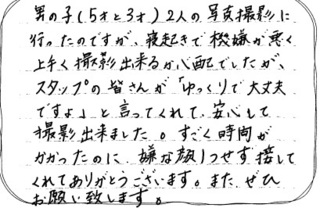 男の子(5才と3才)2人の写真撮影に
行ったのですが、寝起きで機嫌が悪く
上手く撮影出来るか心配でしたが、
スタッフの皆さんが「ゆっくりで大丈夫
ですよ」と言ってくれて、安心して
撮影出来ました。すごく時間が
かかったのに、嫌な顔1つせず接して
くれてありがとうございます。また、ぜひ
お願い致します。